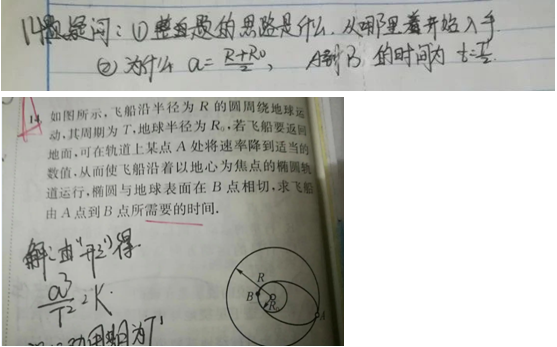 14题疑问:① 整道题的思路是什么,从哪里着手开始入手
② 为什么 a=\frac{R+R_0}{2}, A到B 的时间为 t=\frac{T'}{2}.
14. 如图所示,飞船沿半径为 R 的圆周绕地球运
动,其周期为 T,地球半径为 R₀,若飞船要返回
地面,可在轨道上某点 A 处将速率降到适当的
数值,从而使飞船沿着以地心为焦点的椭圆轨
道运行,椭圆与地球表面在 B 点相切,求飞船
由 A 点到 B 点所需要的时间.
解:由"开三"得.
\frac{a^3}{T^2}=K.
周期为T'
R
B
R₀
A